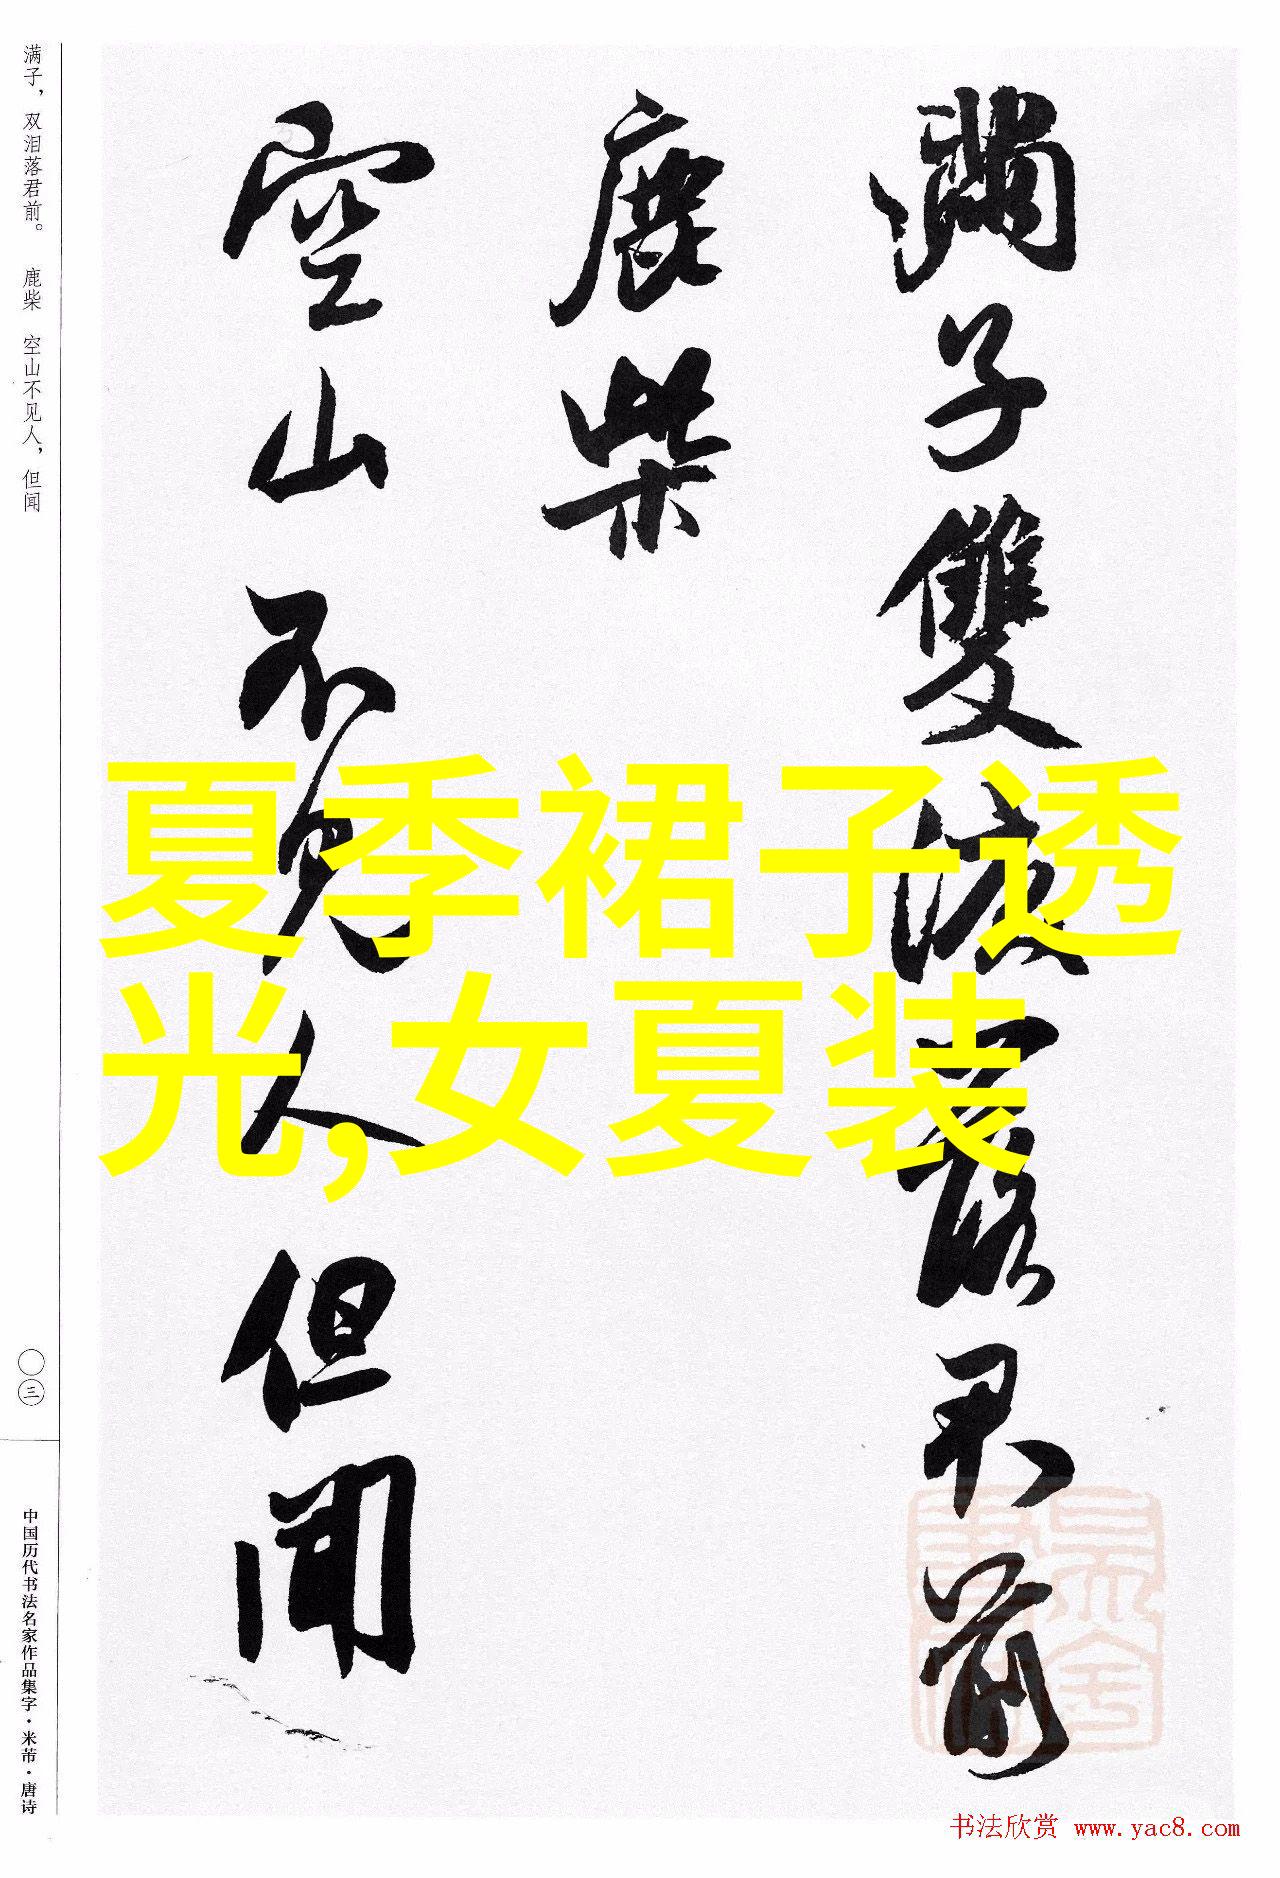 满子，双泪落君前。 鹿柴 空山不见人，但闻
滿子雙淚落君前
鹿柴
空山不見人但聞
夏季裙子透
光,女夏装
〇三
中国历代书法名家作品集字·米芾·唐诗
书法欣赏 www.yac8.com